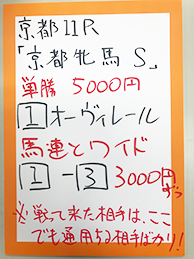 京都11R
「京都牝馬S」
単勝 5000円
1 オーヴィレール
馬連とワイド
1-3 3000円
ずつ
※戦って来た相手は、ここ
でも通用する相手ばかり!